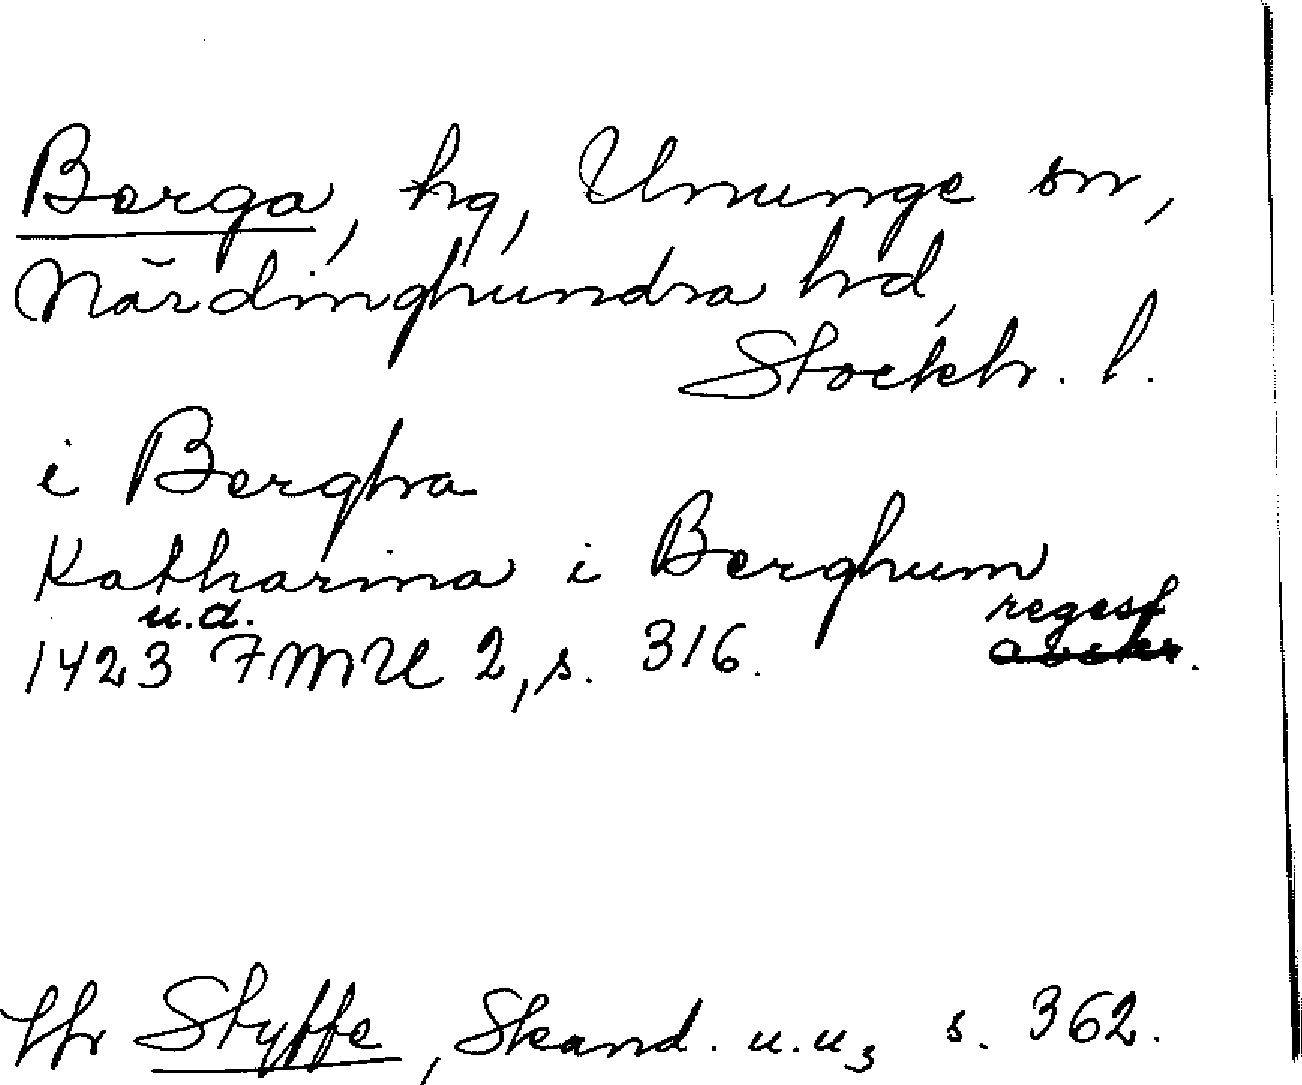 Berga, hg, Ununge sn,
Närdinghundra hd,
Stockh. l.
i Bergha
Katharina i Berghum
u.d. regest
1423 FMU 2, s. 316.
Jfr Styffe, Skand. u.u, s. 362.